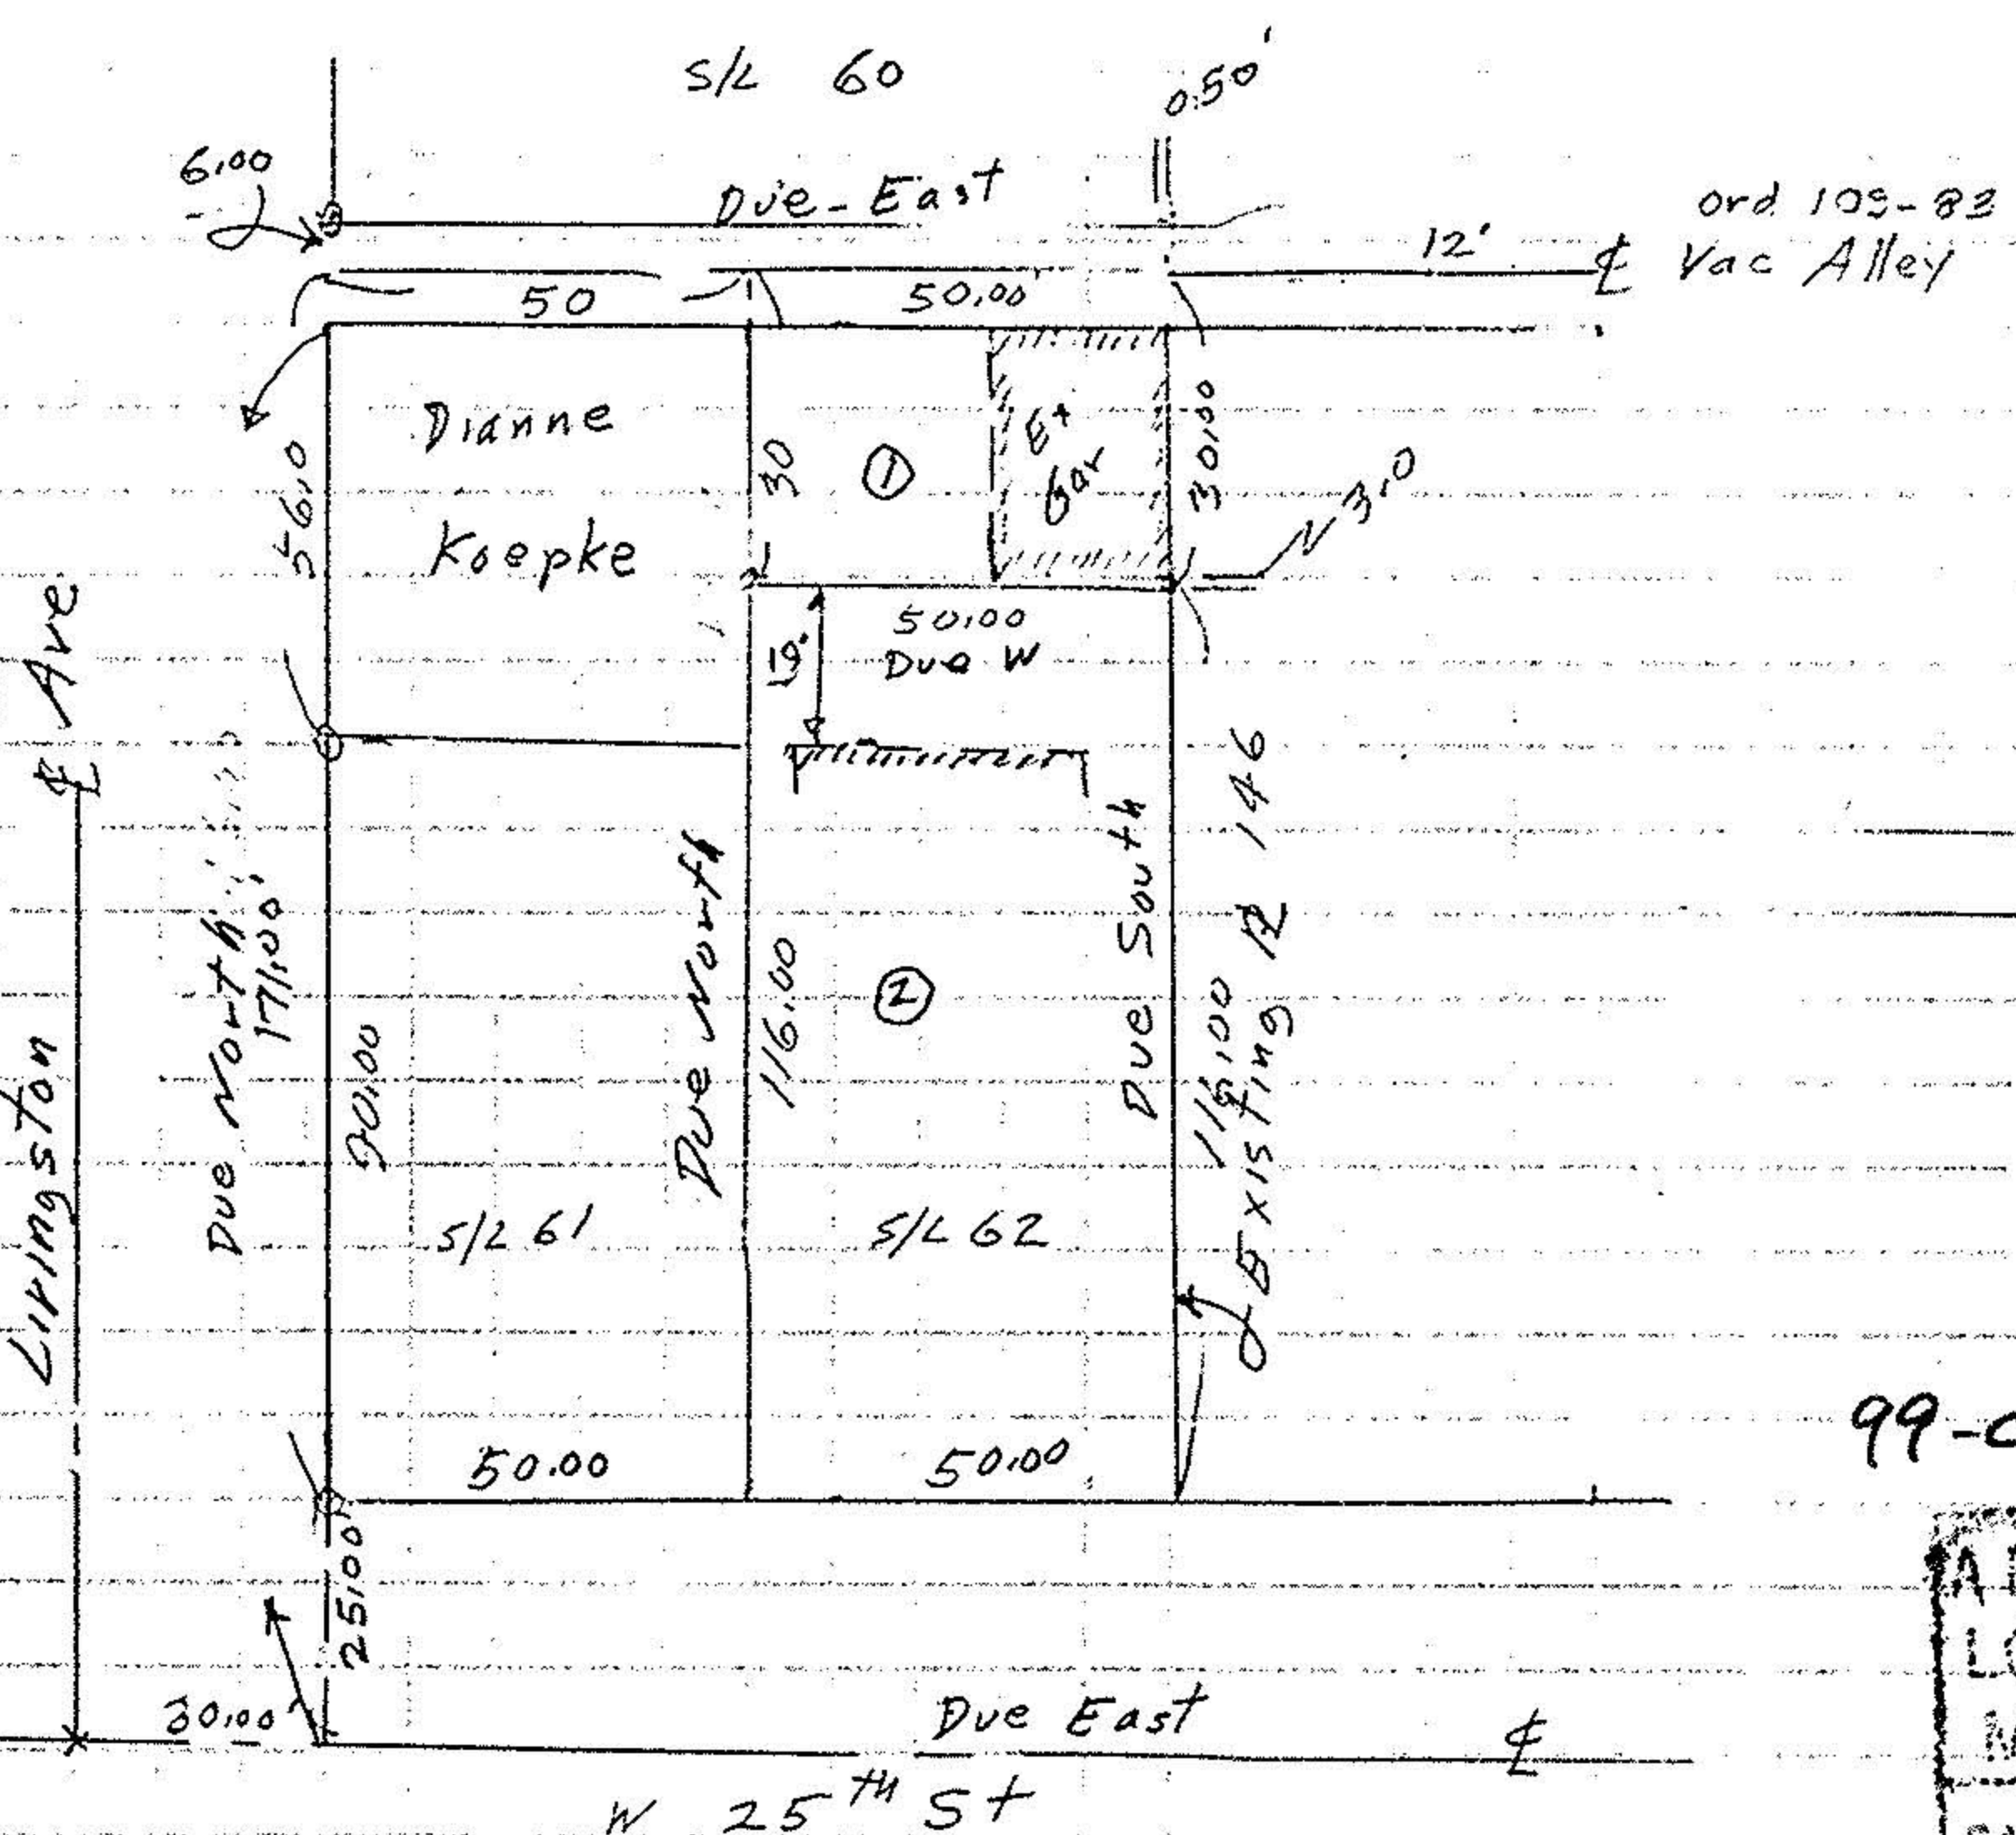 S/L 60
0.50'
6.00
Due-East
Ord 103-83
12'
℄ Vac Alley
50
50.00
Dianne
Koepke
56.0
30
①
Ex
Gar
30.00
N 3.0
50.00
Due W
19'
℄ Ave
Livingston
Due North
171.00
90.00
Due North
116.00
②
Due South
116.00
Existing 146
S/L 61
S/L 62
50.00
50.00
25.00
30.00
Due East
℄
W 25th St
99-